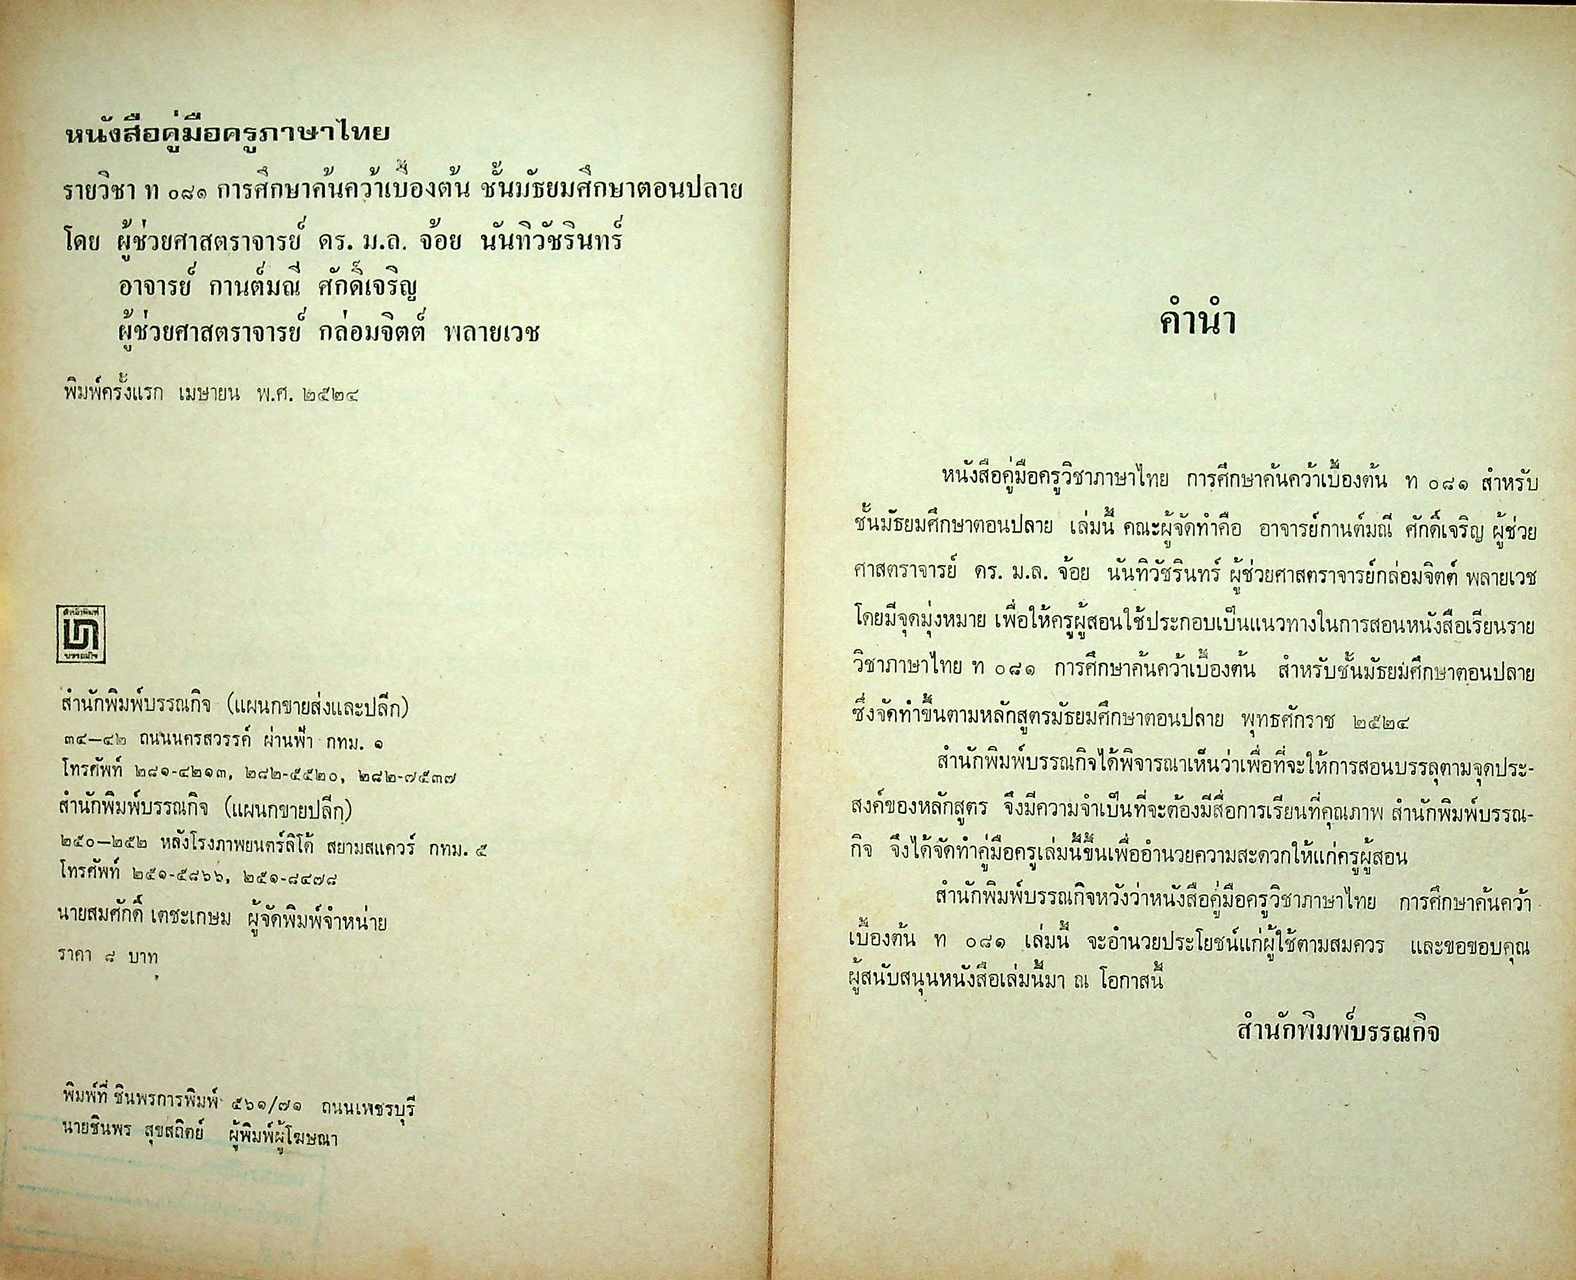 หนังสือคู่มือครูภาษาไทย
รายวิชา ท ๐๘๑ การศึกษาค้นคว้าเบื้องต้น ชั้นมัธยมศึกษาตอนปลาย
โดย ผู้ช่วยศาสตราจารย์ ดร. ม.ล. จ้อย นันทิวัชรินทร์
อาจารย์ กานต์มณี ศักดิ์เจริญ
ผู้ช่วยศาสตราจารย์ กล่อมจิตต์ พลายเวช
พิมพ์ครั้งแรก เมษายน พ.ศ. ๒๕๒๔
สำนักพิมพ์
บรรณกิจ
สำนักพิมพ์บรรณกิจ (แผนกขายส่งและปลีก)
๓๔–๔๒ ถนนนครสวรรค์ ผ่านฟ้า กทม. ๑
โทรศัพท์ ๒๘๑-๔๒๑๓, ๒๘๒-๕๕๒๐, ๒๘๒-๗๕๓๗
สำนักพิมพ์บรรณกิจ (แผนกขายปลีก)
๒๕๐–๒๕๒ หลังโรงภาพยนตร์ลิโด้ สยามสแควร์ กทม. ๕
โทรศัพท์ ๒๕๑-๕๘๖๖, ๒๕๑-๘๔๗๘
นายสมศักดิ์ เตชะเกษม ผู้จัดพิมพ์จำหน่าย
ราคา ๘ บาท
พิมพ์ที่ ชินพรการพิมพ์ ๕๖๑/๗๑ ถนนเพชรบุรี
นายชินพร สุขสถิตย์ ผู้พิมพ์ผู้โฆษณา
คำนำ
หนังสือคู่มือครูวิชาภาษาไทย การศึกษาค้นคว้าเบื้องต้น ท ๐๘๑ สำหรับ
ชั้นมัธยมศึกษาตอนปลาย เล่มนี้ คณะผู้จัดทำคือ อาจารย์กานต์มณี ศักดิ์เจริญ ผู้ช่วย
ศาสตราจารย์ ดร. ม.ล. จ้อย นันทิวัชรินทร์ ผู้ช่วยศาสตราจารย์กล่อมจิตต์ พลายเวช
โดยมีจุดมุ่งหมาย เพื่อให้ครูผู้สอนใช้ประกอบเป็นแนวทางในการสอนหนังสือเรียนราย
วิชาภาษาไทย ท ๐๘๑ การศึกษาค้นคว้าเบื้องต้น สำหรับชั้นมัธยมศึกษาตอนปลาย
ซึ่งจัดทำขึ้นตามหลักสูตรมัธยมศึกษาตอนปลาย พุทธศักราช ๒๕๒๔
สำนักพิมพ์บรรณกิจได้พิจารณาเห็นว่าเพื่อที่จะให้การสอนบรรลุตามจุดประ-
สงค์ของหลักสูตร จึงมีความจำเป็นที่จะต้องมีสื่อการเรียนที่คุณภาพ สำนักพิมพ์บรรณ-
กิจ จึงได้จัดทำคู่มือครูเล่มนี้ขึ้นเพื่ออำนวยความสะดวกให้แก่ครูผู้สอน
สำนักพิมพ์บรรณกิจหวังว่าหนังสือคู่มือครูวิชาภาษาไทย การศึกษาค้นคว้า
เบื้องต้น ท ๐๘๑ เล่มนี้ จะอำนวยประโยชน์แก่ผู้ใช้ตามสมควร และขอขอบคุณ
ผู้สนับสนุนหนังสือเล่มนี้มา ณ โอกาสนี้
สำนักพิมพ์บรรณกิจ